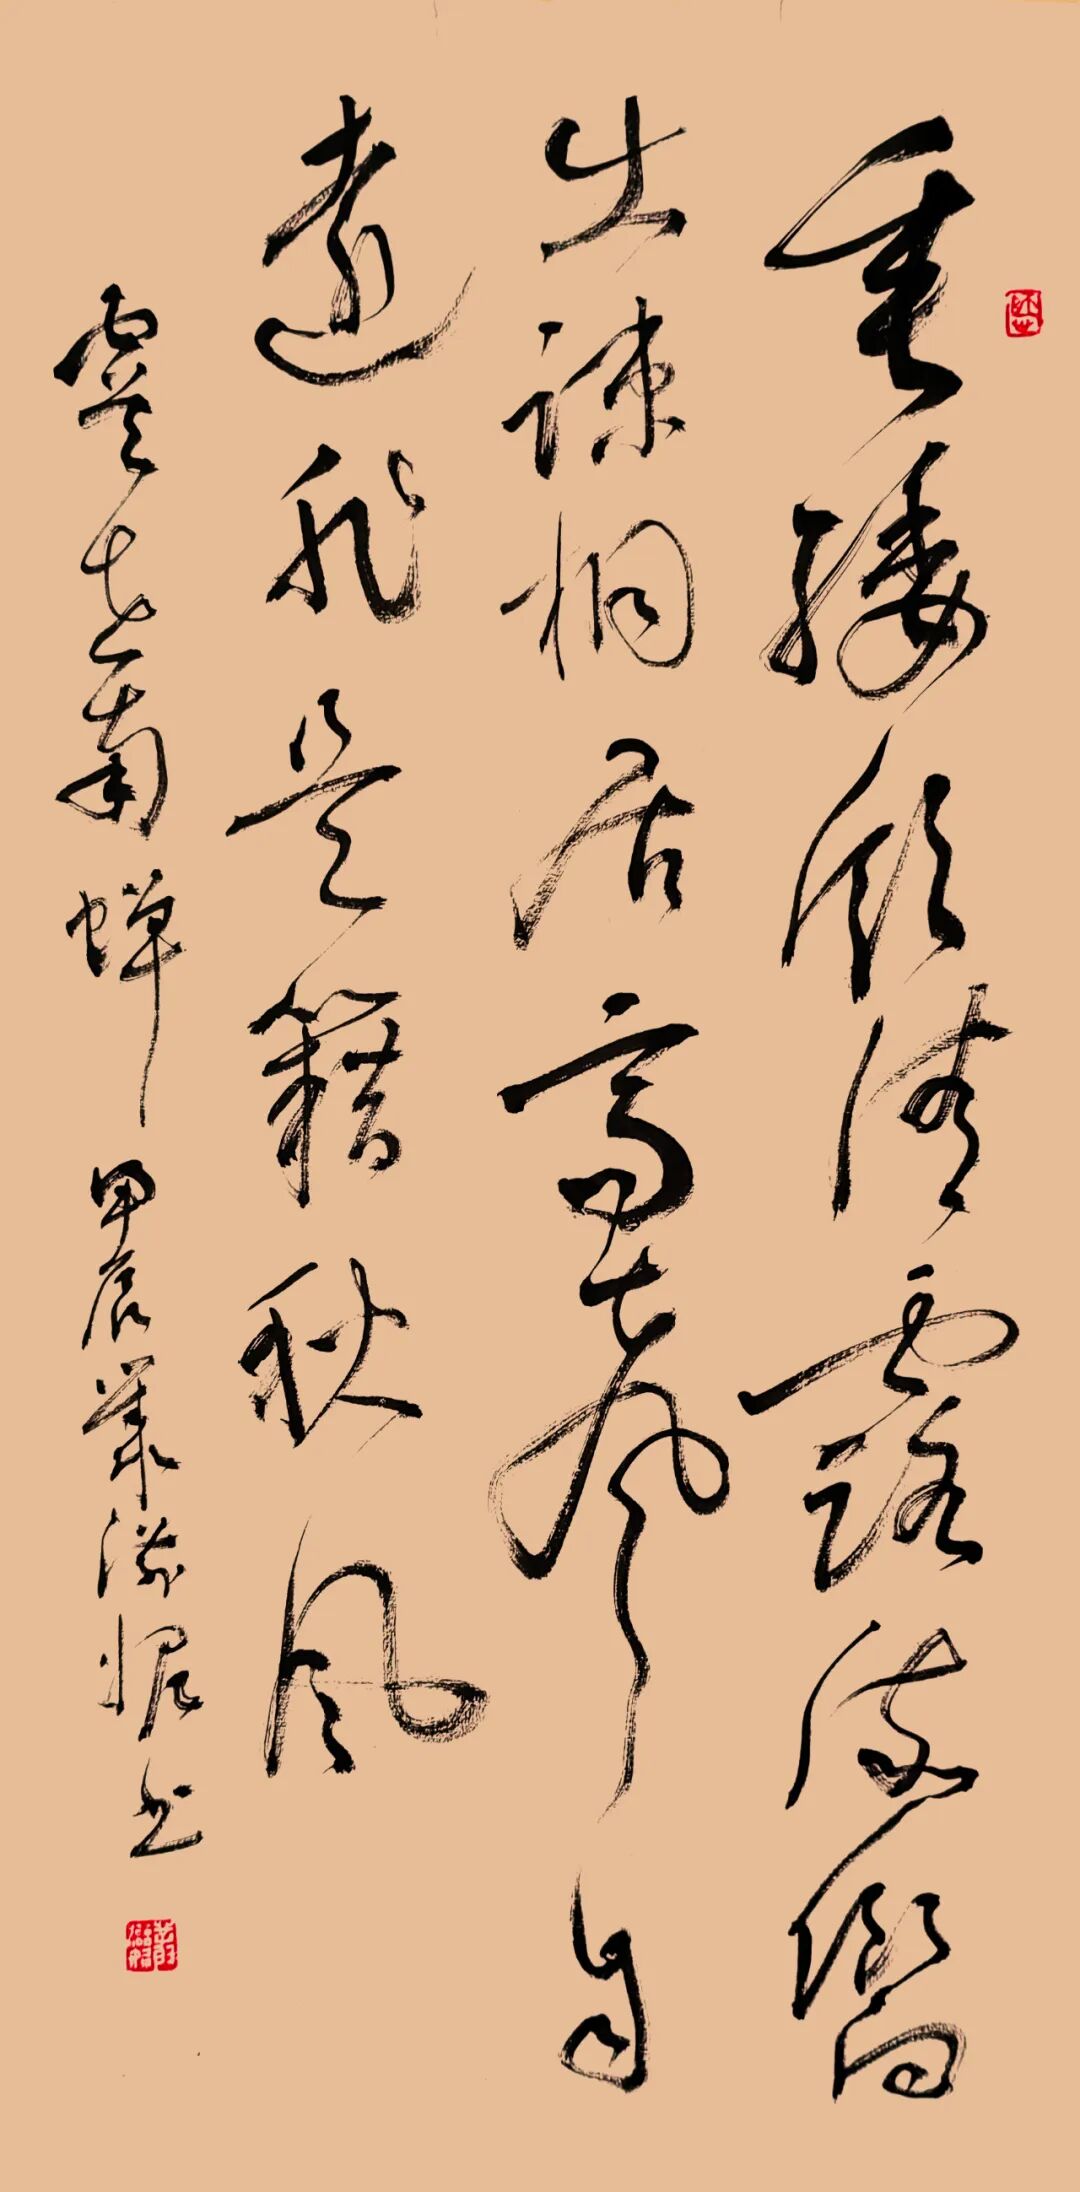 垂緌飲清露流響
出疎桐居高聲自
遠非是籍秋風
虞世南蟬 甲辰叢書